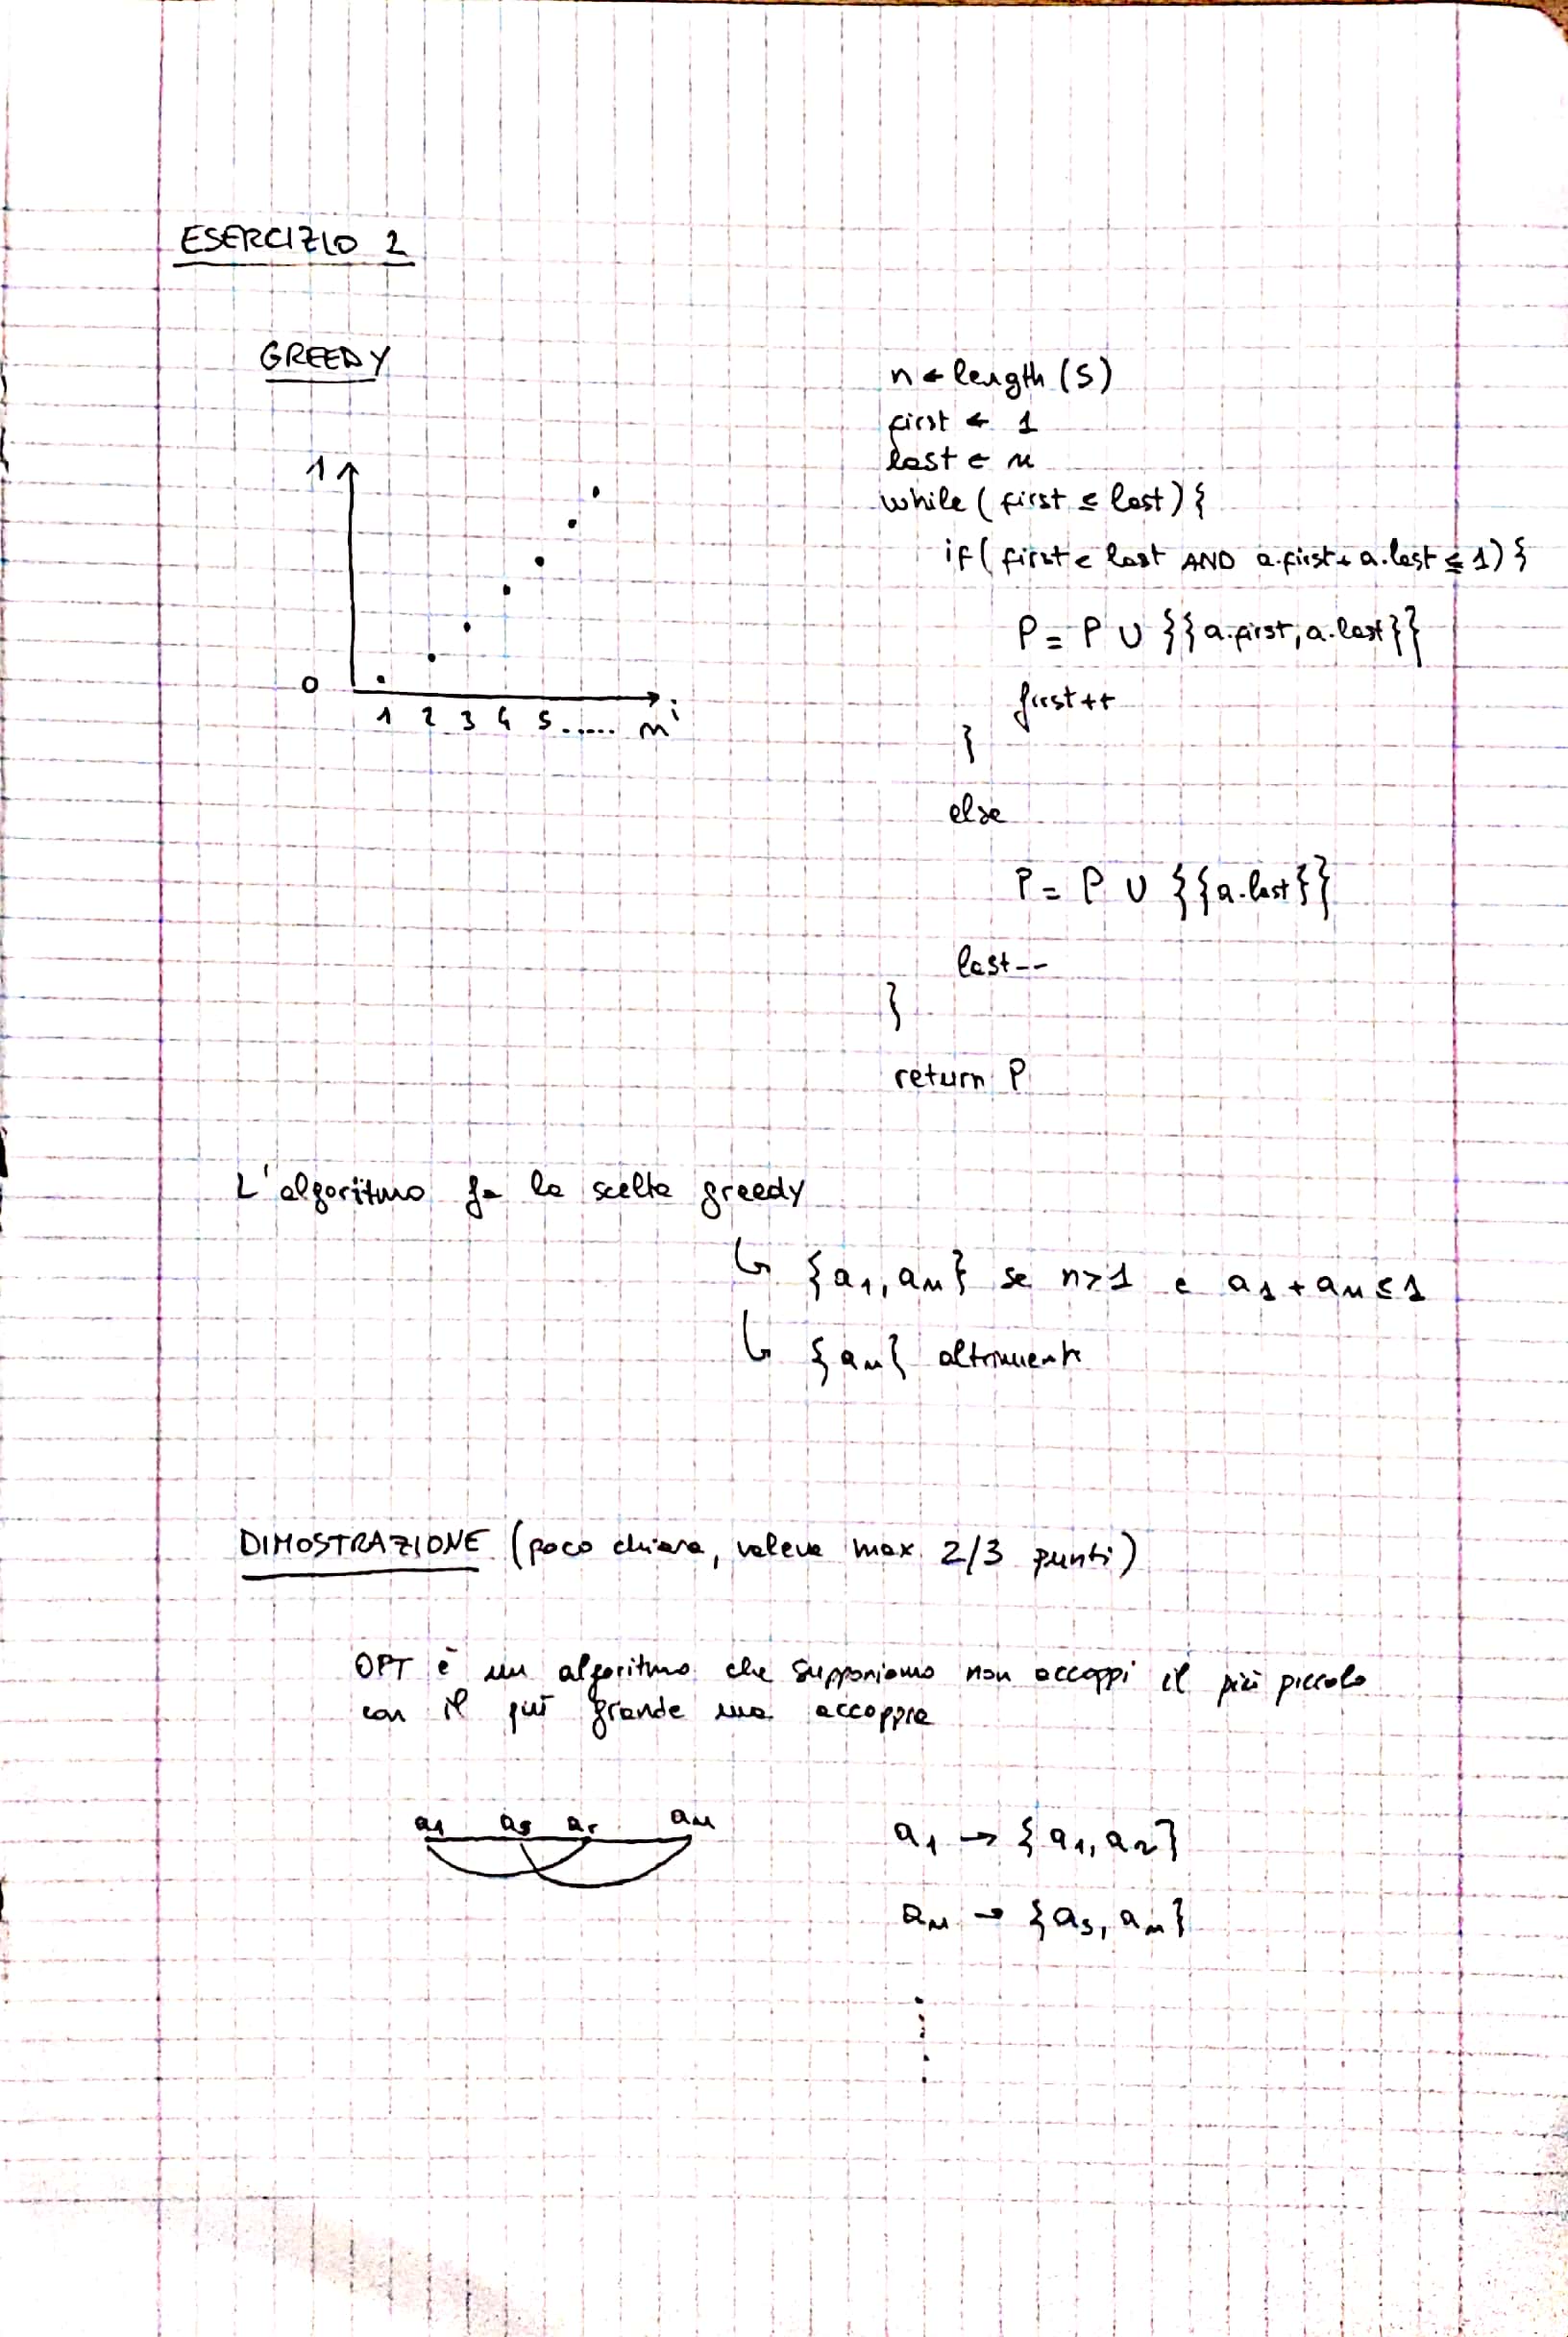 ESERCIZIO 2
GREEDY
1
0
1 2 3 4 5 ...... n i
n ← length (S)
first ← 1
last ← n
while ( first ≤ last ) {
if ( first < last AND a.first + a.last ≤ 1) {
P = P ∪ {{a.first, a.last}}
first++
}
else
P = P ∪ {{a.last}}
last--
}
return P
L'algoritmo fa la scelta greedy
↳ {a1, an} se n>1 e a1 + an ≤ 1
↳ {an} altrimenti
DIMOSTRAZIONE (poco chiara, valeva max 2/3 punti)
OPT è un algoritmo che supponiamo non accoppi il più piccolo
con il più grande ma accoppia
a1 as ar an
a1 → {a1, ar}
an → {as, an}